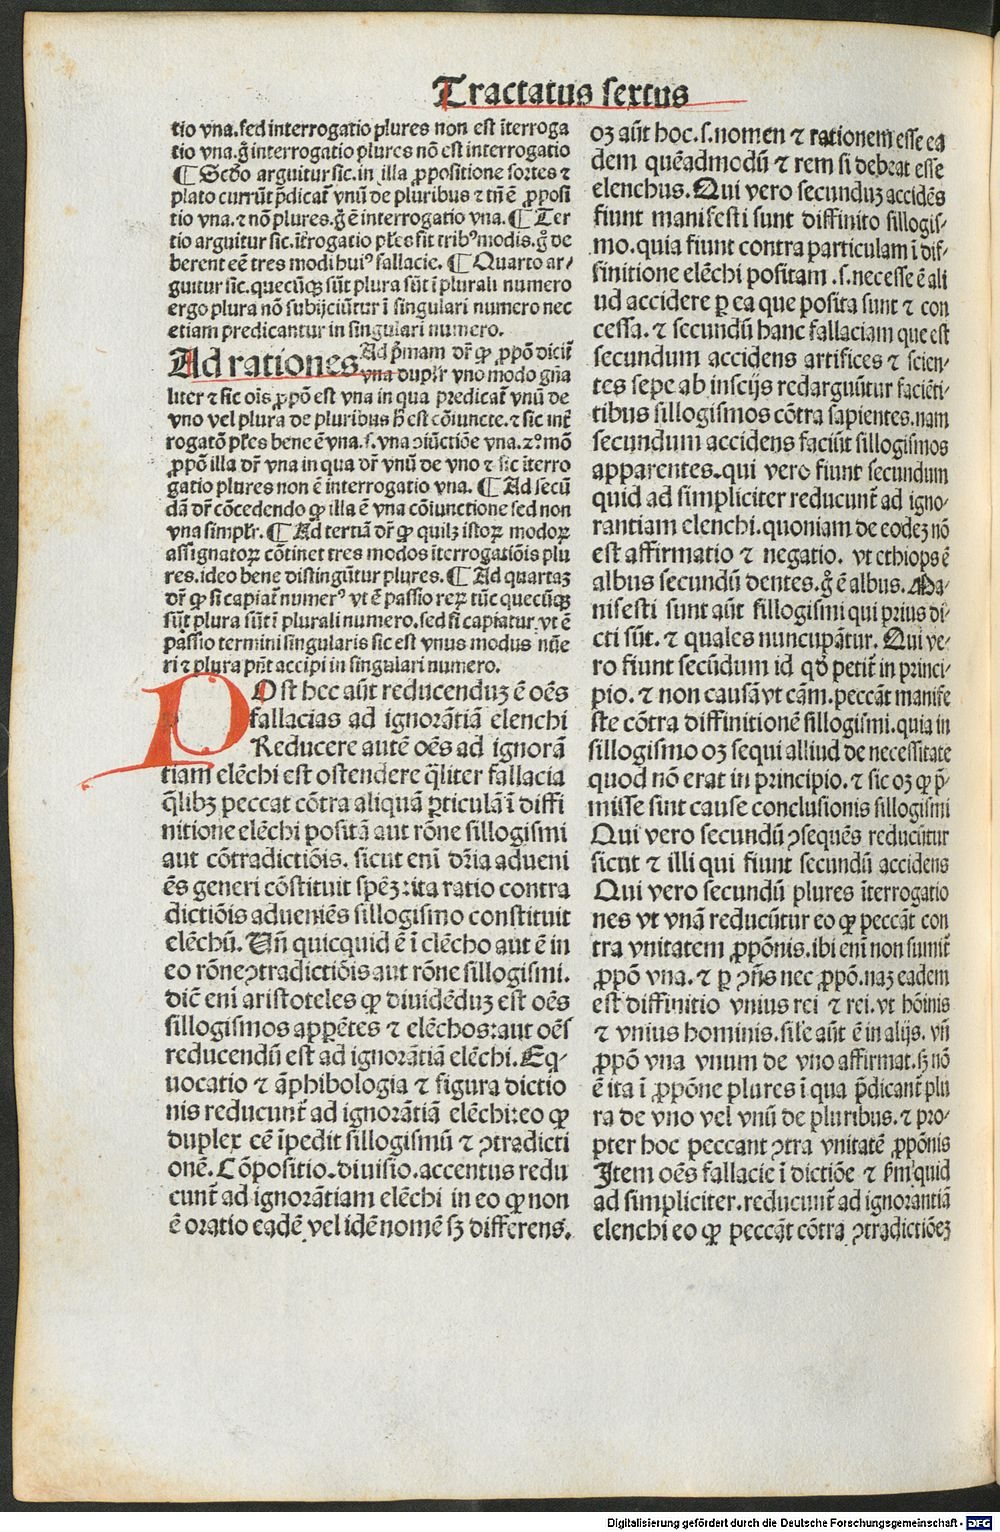 Tractatus sextus
tio vna. sed interrogatio plures non est īterroga
tio vna. g̊ interrogatio plures nō est interrogatio
¶ Scd̄o arguitur sic. in illa ꝓpositione sortes ⁊
plato currūt p̄dicat̄ vnū de pluribus ⁊ tn̄ ē ꝓposi
tio vna. ⁊ nō plures. g̊ ē interrogatio vna. ¶ Ter
tio arguitur sic. īt̄rogatio pl̄es fit tribꝰ modis. g̊ de
berent eē tres modi huiꝰ fallacie. ¶ Quarto ar⸗
guitur sic. quecūqꝫ sūt plura sūt ī plurali numero
ergo plura nō subijciūtur ī singulari numero nec
etiam predicantur in singulari numero.
Ad rationes Ad p̄mam dr̄ ꝙ ꝓpō dicit̄
vna dupl̄r vno modo gn̄a
liter ⁊ sic oīs ꝓpō est vna in qua predicat̄ vnū de
vno vel plura de pluribus h̄ est cōiuncte. ⁊ sic int̄
rogatō pl̄es bene ē vna. s. vna ꝯiūctiōe vna. ⁊º mō
ꝓpō illa dr̄ vna in qua dr̄ vnū de vno ⁊ sic īterro
gatio plures non ē interrogatio vna. ¶ Ad secū
dā dr̄ cōcedendo ꝙ illa ē vna cōiunctione sed non
vna simpl̄r. ¶ Ad tertiā dr̄ ꝙ quilꝫ istoꝝ modoꝝ
assignatoꝝ cōtinet tres modos īterrogatiōis plu
res. ideo bene distingūtur plures. ¶ Ad quartaꝫ
dr̄ ꝙ si capiat̄ numerꝰ vt ē passio reꝝ tūc quecūqꝫ
sūt plura sūt ī plurali numero. sed si capiatur. vt ē
passio termini singularis sic est vnus modus nūe
ri ⁊ plura pn̄t accipi in singulari numero.
POst hec aūt reducenduꝫ ē oēs
fallacias ad ignorātiā elenchi
Reducere autē oēs ad ignorā
tiam elēchi est ostendere q̄liter fallacia
q̄libꝫ peccat cōtra aliquā ꝑticulā ī diffi
nitione elēchi positā aut rōne sillogismi
aut cōtradictiōis. sicut enī dr̄ia adueni
ēs generi cōstituit spēꝫ: ita ratio contra
dictiōis adueniēs sillogismo constituit
elēchū. Vn̄ quicquid ē ī elēcho aut ē in
eo rōne ꝯtradictiōis aut rōne sillogismi.
dicē enī aristoteles ꝙ diuidēduꝫ est oēs
sillogismos apꝑētes ⁊ elēchos: aut oēs
reducendū est ad ignorātiā elēchi. Eq⸗
uocatio ⁊ āphibologia ⁊ figura dictio
nis reducunt̄ ad ignorātiā elēchi: eo ꝙ
duplex eē īpedit sillogismū ⁊ ꝯtradicti
onē. Cōpositio. diuisio. accentus redu
cunt̄ ad ignorātiam elēchi in eo ꝙ non
ē oratio eadē vel idē nomē sꝫ differens.
oꝫ aūt hoc. s. nomen ⁊ rationem esse ea
dem quēadmodū ⁊ rem si debeat esse
elenchus. Qui vero secunduꝫ accidēs
fiunt manifesti sunt diffinito sillogis⸗
mo. quia fiunt contra particulam ī dif⸗
finitione elēchi positam. s. necesse ē ali
ud accidere ꝑ ea que posita sunt ⁊ con
cessa. ⁊ secundū hanc fallaciam que est
secundum accidens artifices ⁊ scien⸗
tes sepe ab inscijs redarguūtur faciēti⸗
tibus sillogismos cōtra sapientes. nam
secundum accidens faciūt sillogismos
apparentes. qui vero fiunt secundum
quid ad simpliciter reducunt̄ ad igno⸗
rantiam elenchi. quoniam de eodeꝫ nō
est affirmatio ⁊ negatio. vt ethiops ē
albus secundū dentes. g̊ ē albus. Ma⸗
nifesti sunt aūt sillogismi qui prius di⸗
cti sūt. ⁊ quales nuncupātur. Qui ve⸗
ro fiunt secūdum id qd̓ petit̄ in princi⸗
pio. ⁊ non causā vt cām. peccāt manife
ste cōtra diffinitionē sillogismi. quia in
sillogismo oꝫ sequi alliud de necessitate
quod nō erat in principio. ⁊ sic oꝫ ꝙ p̄
misse sint cause conclusionis sillogismi
Qui vero secundū ꝯsequēs reducūtur
sicut ⁊ illi qui fiunt secundū accidens
Qui vero secundū plures īterrogatio
nes vt vnā reducūtur eo ꝙ peccāt con
tra vnitatem ꝓpōnis. ibi enī non sumit̄
ꝓpō vna. ⁊ ꝑ ꝯn̄s nec ꝓpō. naꝫ eadem
est diffinitio vnius rei ⁊ rei. vt hōinis
⁊ vnius hominis. sil̄e aūt ē in alijs. vn̄
ꝓpō vna vnum de vno affirmat. sꝫ nō
ē ita ī ꝓpōne plures ī qua p̄dicant̄ plu
ra de vno vel vnū de pluribus. ⁊ pro⸗
pter hoc peccant ꝯtra vnitatē ꝓpōnis
Item oēs fallacie ī dictiōe ⁊ fm̄ quid
ad simpliciter. reducunt̄ ad ignorantiā
elenchi eo ꝙ peccāt cōtra ꝯtradictiōeꝫ
Digitalisierung gefördert durch die Deutsche Forschungsgemeinschaft - DFG